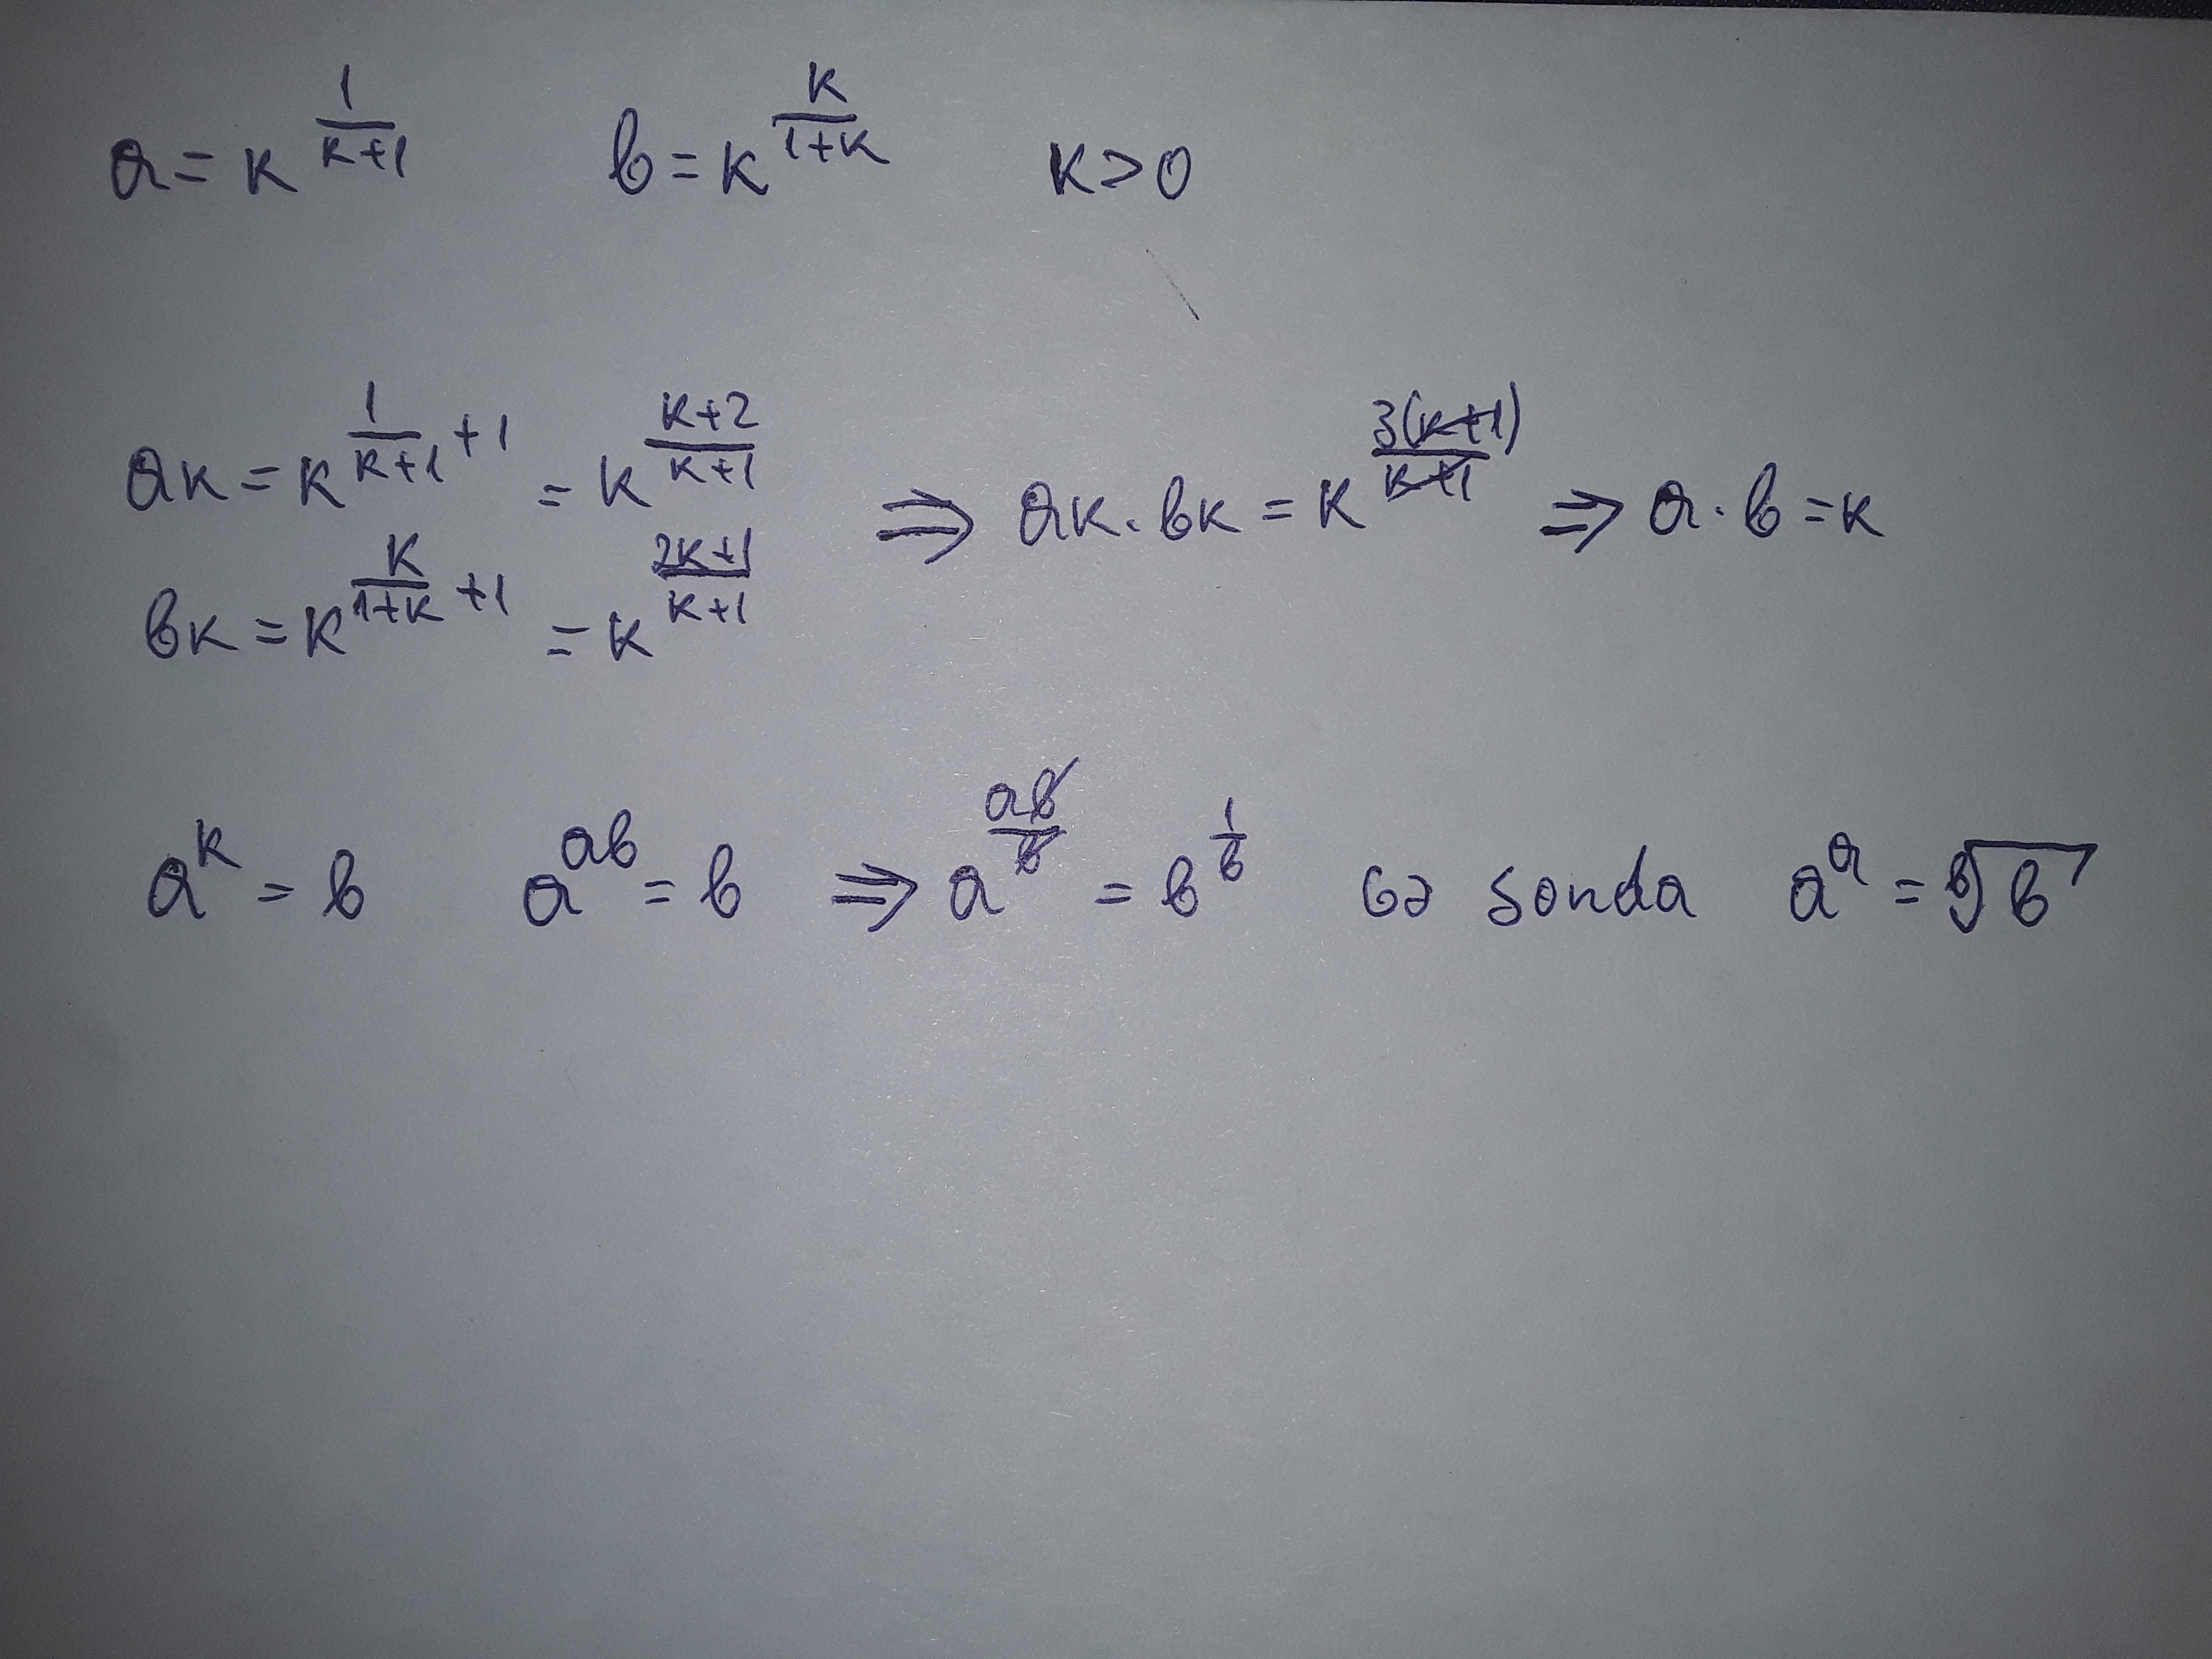 a = k^(1/(k+1))   b = k^(k/(1+k))   k>0
ak = k^(1/(k+1) + 1) = k^((k+2)/(k+1))
bk = k^(k/(1+k) + 1) = k^((2k+1)/(k+1))
⇒ ak · bk = k^(3(k+1)/(k+1)) ⇒ a · b = k
a^k = b   a^(ab) = b ⇒ a^(ab/b) = b^(1/b)   və sonda   a^a = ᵇ√b